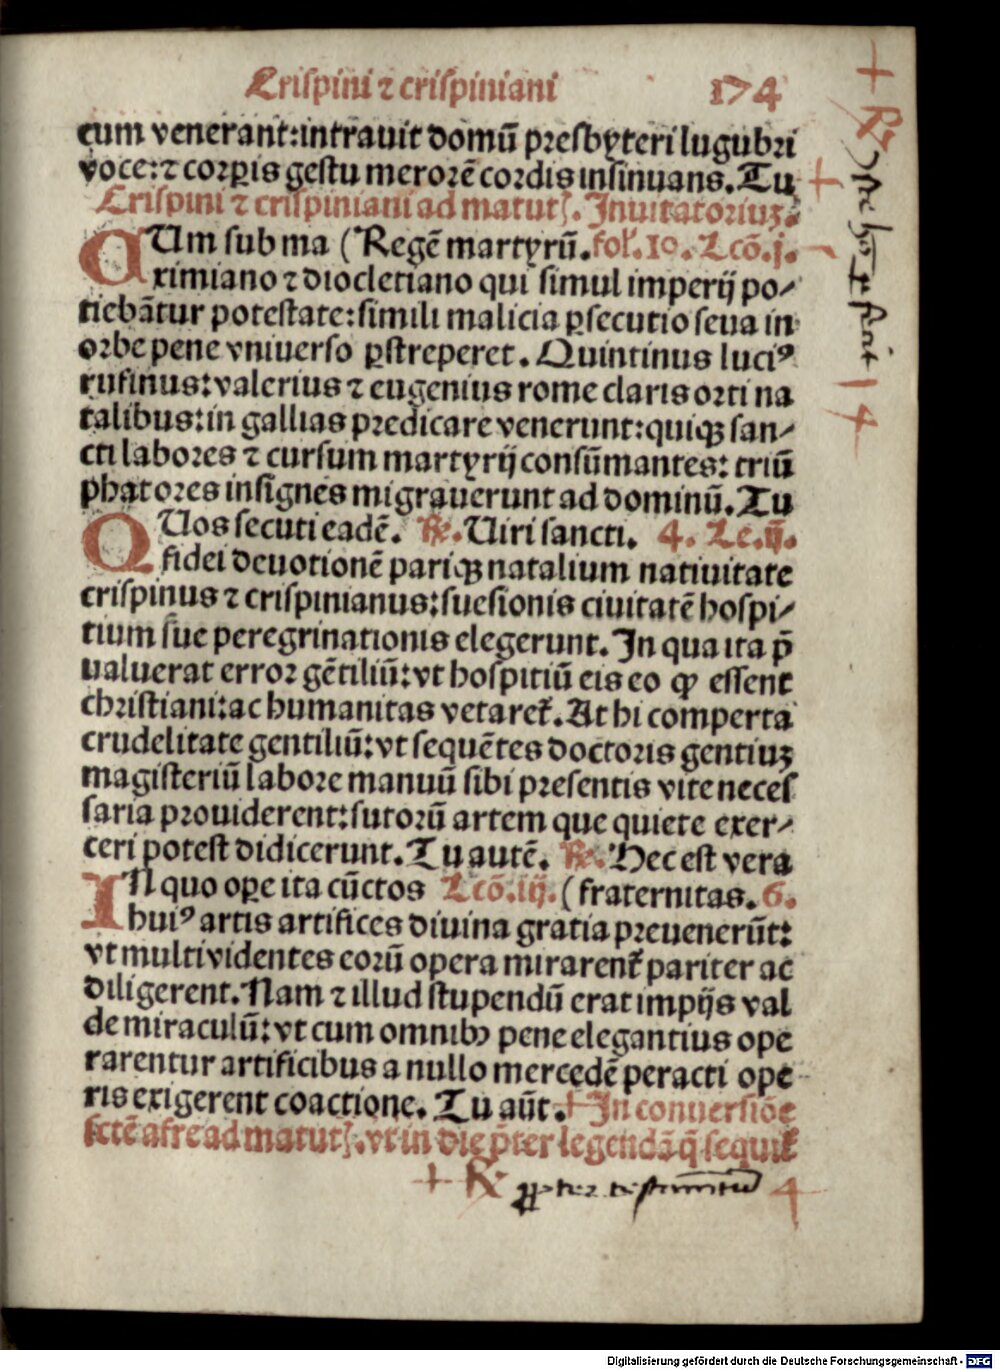 Crispini ⁊ crispiniani 174
cum venerant:intrauit domū presbyteri lugubri
voce:⁊ corꝑis gestu merorē cordis insinuans. Tu
Crispini ⁊ crispiniani ad matutꝭ. Inuitatoriuꝫ.
CUm sub ma (Regē martyrū. fol. 10. Lcō. j.
ximiano ⁊ diocletiano qui simul imperij po⸗
tiebātur potestate:simili malicia ꝑsecutio seua in
orbe pene vniuerso ꝑstreperet. Quintinus luciꝰ
rufinus:valerius ⁊ eugenius rome claris orti na
talibus:in gallias predicare venerunt:quiqꝫ san⸗
cti labores ⁊ cursum martyrij consūmantes: triū
phatores insignes migrauerunt ad dominū. Tu
QUos secuti eadē. ℟. Uiri sancti. 4. Lc. ij.
fidei deuotionē pariqꝫ natalium natiuitate
crispinus ⁊ crispinianus:suesionis ciuitatē hospi⸗
tium sue peregrinationis elegerunt. In qua ita p̄
ualuerat error gētiliū:vt hospitiū eis eo ꝙ essent
christiani:ac humanitas vetaret᷑. At hi comperta
crudelitate gentiliū:vt sequētes doctoris gentiuꝫ
magisteriū labore manuū sibi presentis vite neces
saria prouiderent:sutorū artem que quiete exer⸗
ceri potest didicerunt. Tu autē. ℟. Hec est vera
IN quo oꝑe ita cūctos Lcō. iij. (fraternitas. 6.
huiꝰ artis artifices diuina gratia preuenerūt:
vt multi videntes eorū opera mirarent᷑ pariter ac
diligerent. Nam ⁊ illud stupendū erat impijs val
de miraculū:vt cum omnibꝰ pene elegantius ope
rarentur artificibus a nullo mercedē peracti ope
ris exigerent coactione. Tu aūt. + In conuersiōe
sctē afre ad matutꝭ. vt in die p̄ter legendā q̄ sequit᷑
+ ℟ 4
+ ℟
4
Digitalisierung gefördert durch die Deutsche Forschungsgemeinschaft - DFG